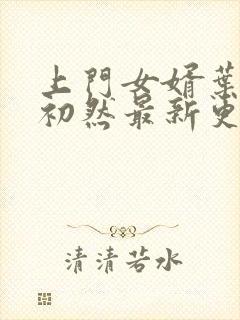 上門女婿葉
初然最新更
清清若水